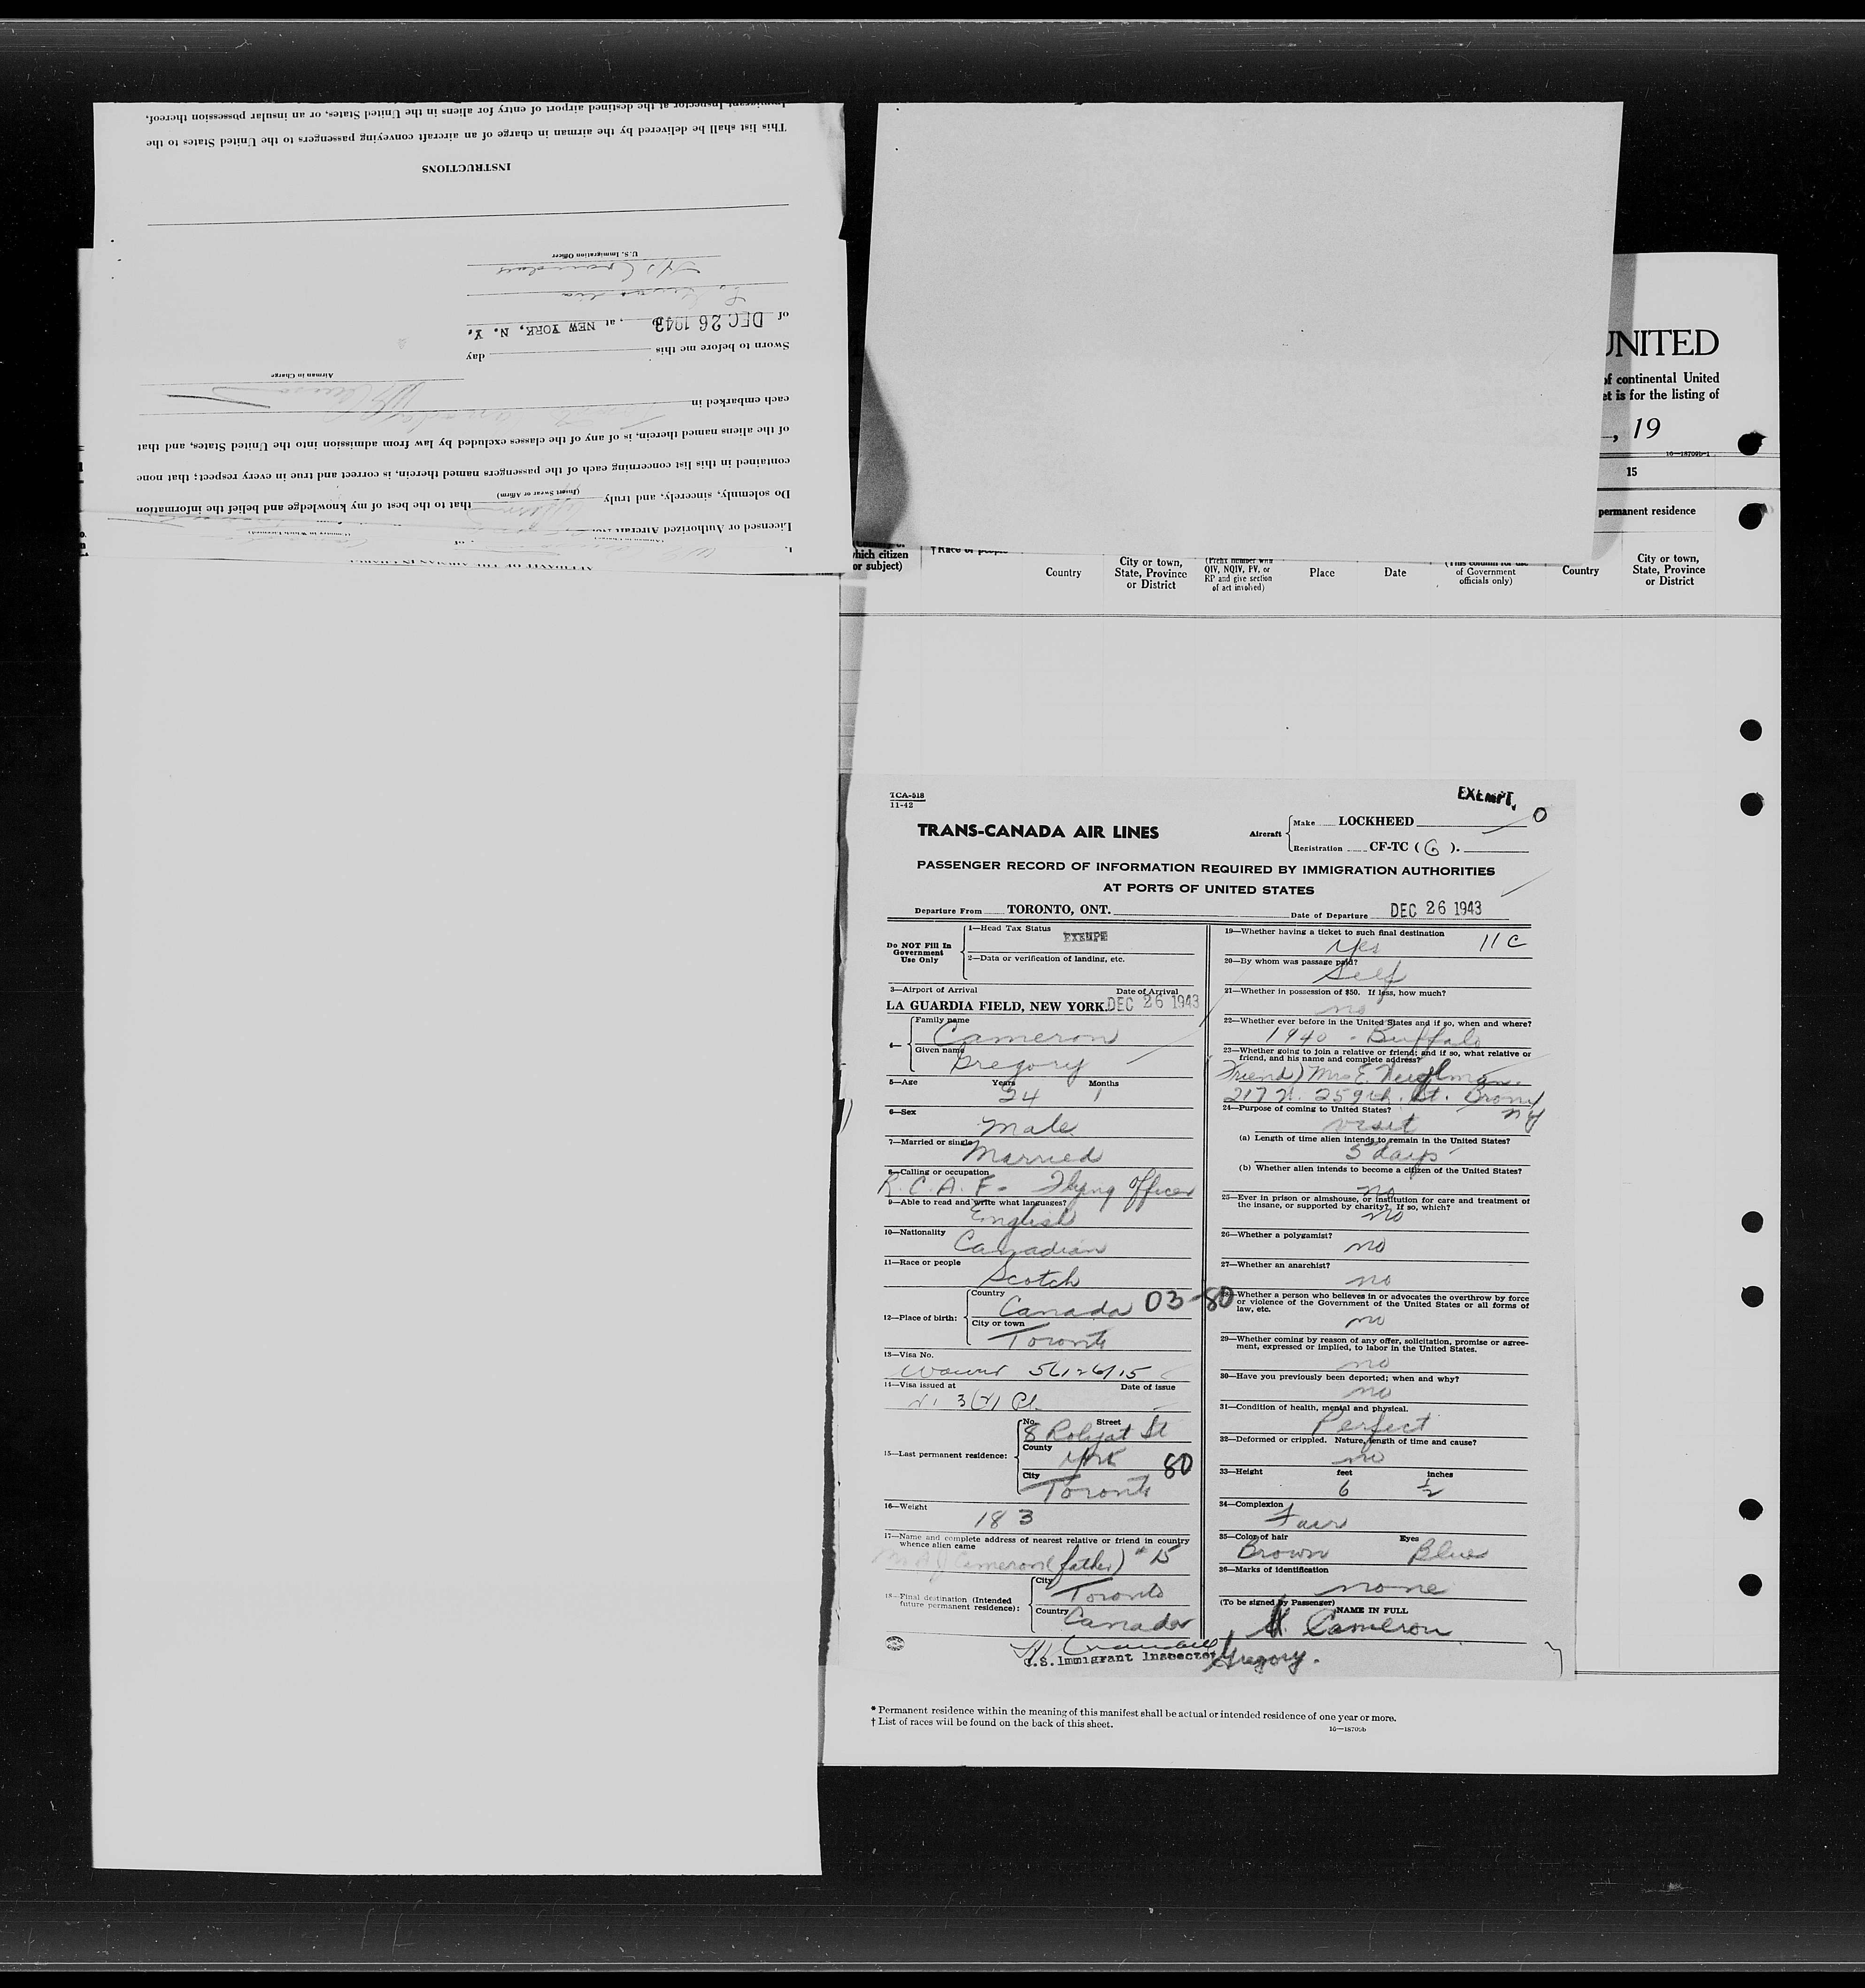 Immigrant Inspector at the destined airport of entry for aliens in the United States, or an insular possession thereof.
This list shall be delivered by the airman in charge of an aircraft conveying passengers to the United States to the
INSTRUCTIONS
U.S. Immigration Officer
of DEC 26 1943, at NEW YORK, N. Y.
Sworn to before me this day
Airman in Charge
each embarked in
of the aliens named therein, is of any of the classes excluded by law from admission into the United States, and that
contained in this list concerning each of the passengers named therein, is correct and true in every respect; that none
Do solemnly, sincerely, and truly that to the best of my knowledge and belief the information
(Insert Swear or Affirm)
Licensed or Authorized Aircraft
(Country in Which Licensed)
I, of
AFFIDAVIT OF THE AIRMAN IN CHARGE
UNITED
of continental United
et is for the listing of
, 19
16—18709b-1
15
permanent residence
which citizen
or subject)
† Race or people
Country
City or town,
State, Province
or District
(Prefix number with
QIV, NQIV, PV, or
RP and give section
of act involved)
Place
Date
(This column for use
of Government
officials only)
Country
City or town,
State, Province
or District
TCA-518
11-42
EXEMPT, 0
TRANS-CANADA AIR LINES
Aircraft
Make LOCKHEED
Registration CF-TC ( G ).
PASSENGER RECORD OF INFORMATION REQUIRED BY IMMIGRATION AUTHORITIES
AT PORTS OF UNITED STATES
Departure From TORONTO, ONT. Date of Departure DEC 26 1943
Do NOT Fill In
Government
Use Only
1—Head Tax Status
EXEMPT
2—Data or verification of landing, etc.
3—Airport of Arrival Date of Arrival
LA GUARDIA FIELD, NEW YORK. DEC 26 1943
4—
Family name
Cameron
Given name
Gregory
5—Age Years Months
24 1
6—Sex
Male
7—Married or single
Married
8—Calling or occupation
R.C.A.F. - Flying Officer
9—Able to read and write what languages?
English
10—Nationality
Canadian
11—Race or people
Scotch
12—Place of birth:
Country
Canada 03-80
City or town
Toronto
13—Visa No.
14—Visa issued at Date of issue
15—Last permanent residence:
No. Street
8 Rolyat St
County
York 80
City
Toronto
16—Weight
183
17—Name and complete address of nearest relative or friend in country
whence alien came
Mr A J Cameron (father) #15
18—Final destination (Intended
future permanent residence):
City
Toronto
Country
Canada
U.S. Immigrant Inspector
19—Whether having a ticket to such final destination
Yes 11 C
20—By whom was passage paid?
Self
21—Whether in possession of $50. If less, how much?
no
22—Whether ever before in the United States and if so, when and where?
1940 - Buffalo
23—Whether going to join a relative or friend; and if so, what relative or
friend, and his name and complete address?
Friend) Mrs E.
259th. St. Bronx
N Y
24—Purpose of coming to United States?
visit
(a) Length of time alien intends to remain in the United States?
5 days
(b) Whether alien intends to become a citizen of the United States?
no
25—Ever in prison or almshouse, or institution for care and treatment of
the insane, or supported by charity? If so, which?
no
26—Whether a polygamist?
no
27—Whether an anarchist?
no
28—Whether a person who believes in or advocates the overthrow by force
or violence of the Government of the United States or all forms of
law, etc.
no
29—Whether coming by reason of any offer, solicitation, promise or agree-
ment, expressed or implied, to labor in the United States.
no
30—Have you previously been deported; when and why?
no
31—Condition of health, mental and physical.
Perfect
32—Deformed or crippled. Nature, length of time and cause?
no
33—Height feet inches
6 ½
34—Complexion
Fair
35—Color of hair Eyes
Brown Blue
36—Marks of identification
none
(To be signed by Passenger)
NAME IN FULL
Cameron
Gregory.
* Permanent residence within the meaning of this manifest shall be actual or intended residence of one year or more.
† List of races will be found on the back of this sheet.
16—18709b